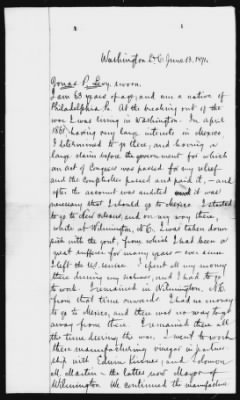 Washington D.C. June 13. 1871.
Jonas P. Levy, sworn.
I am 63 years of age, and am a native of
Philadelphia Pa. At the breaking out of the
war I was living in Washington. In April
1861 having very large interests in Mexico
I determined to go there, and having a
large claim before the government for which
an act of Congress was passed for my relief
and the comptroller passed and paid it, – and
after the account was audited it was
necessary that I should go to Mexico. I started
to go to and on my way there,
while at Wilmington, N.C. I was taken down
sick with the gout, from which I had been a
great sufferer for many years – ever since
I left the U.S. service. I spent all my money
there during my sickness, and I had to go
to work. I remained in Wilmington, N.C.
from that time onwards. I had no money
to go to Mexico, and there was no way to get
away from there. I remained there all
the time during the war. I went to work
there manufacturing vinegar in partner-
ship with Edwin and Solomon
M. Martin – the latter now Mayor of
Wilmington. We continued the manufacture